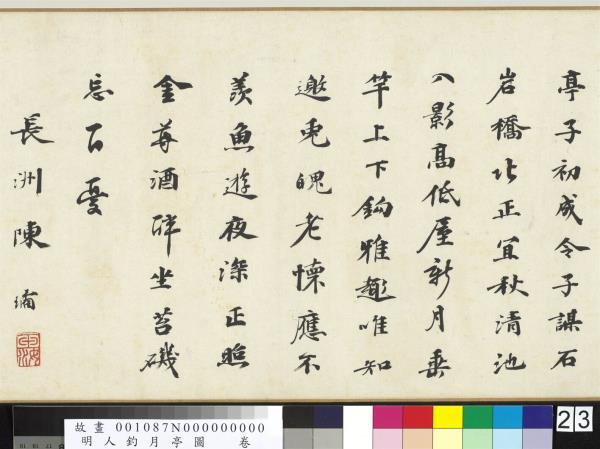 亭子初成令子謀石
岩橋北正宜秋清池
入影高低屋新月垂
竿上下鈎雅趣唯知
邀兔魄老懷應不
羨魚遊夜深正照
金尊酒醉坐苔磯
忘百憂
長洲陳
故畫 001087N000000000
明人釣月亭圖 卷
23